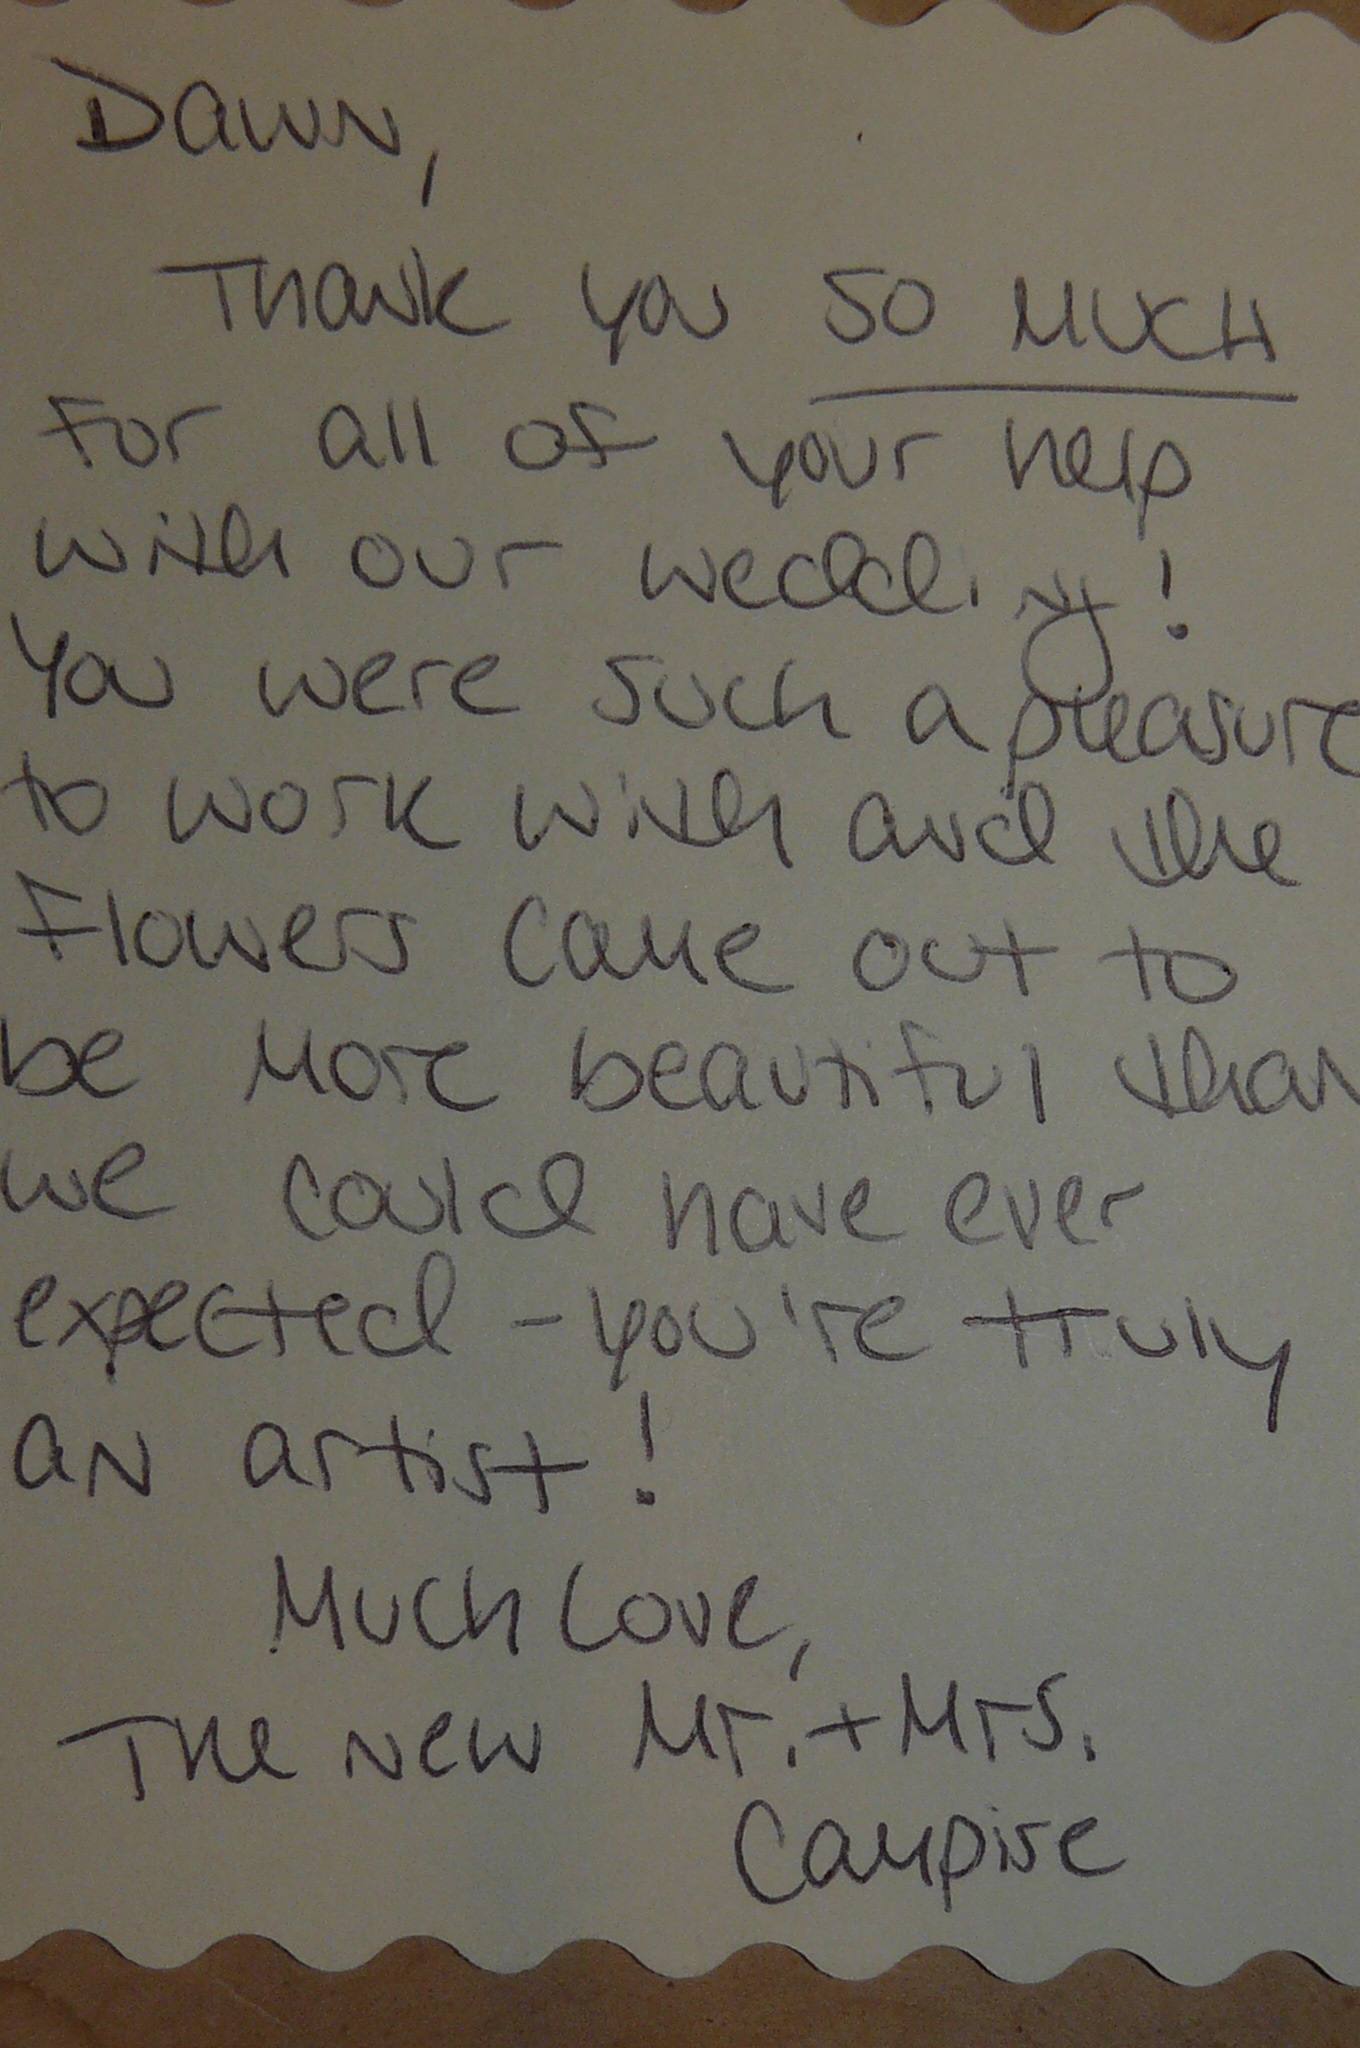 Dawn,
Thank you SO MUCH
For all of your help
with our wedding!
You were such a pleasure
to work with and the
Flowers came out to
be more beautiful than
we could have ever
expected - you're truly
an artist!
Much Love,
The New Mr. + Mrs.
Campise